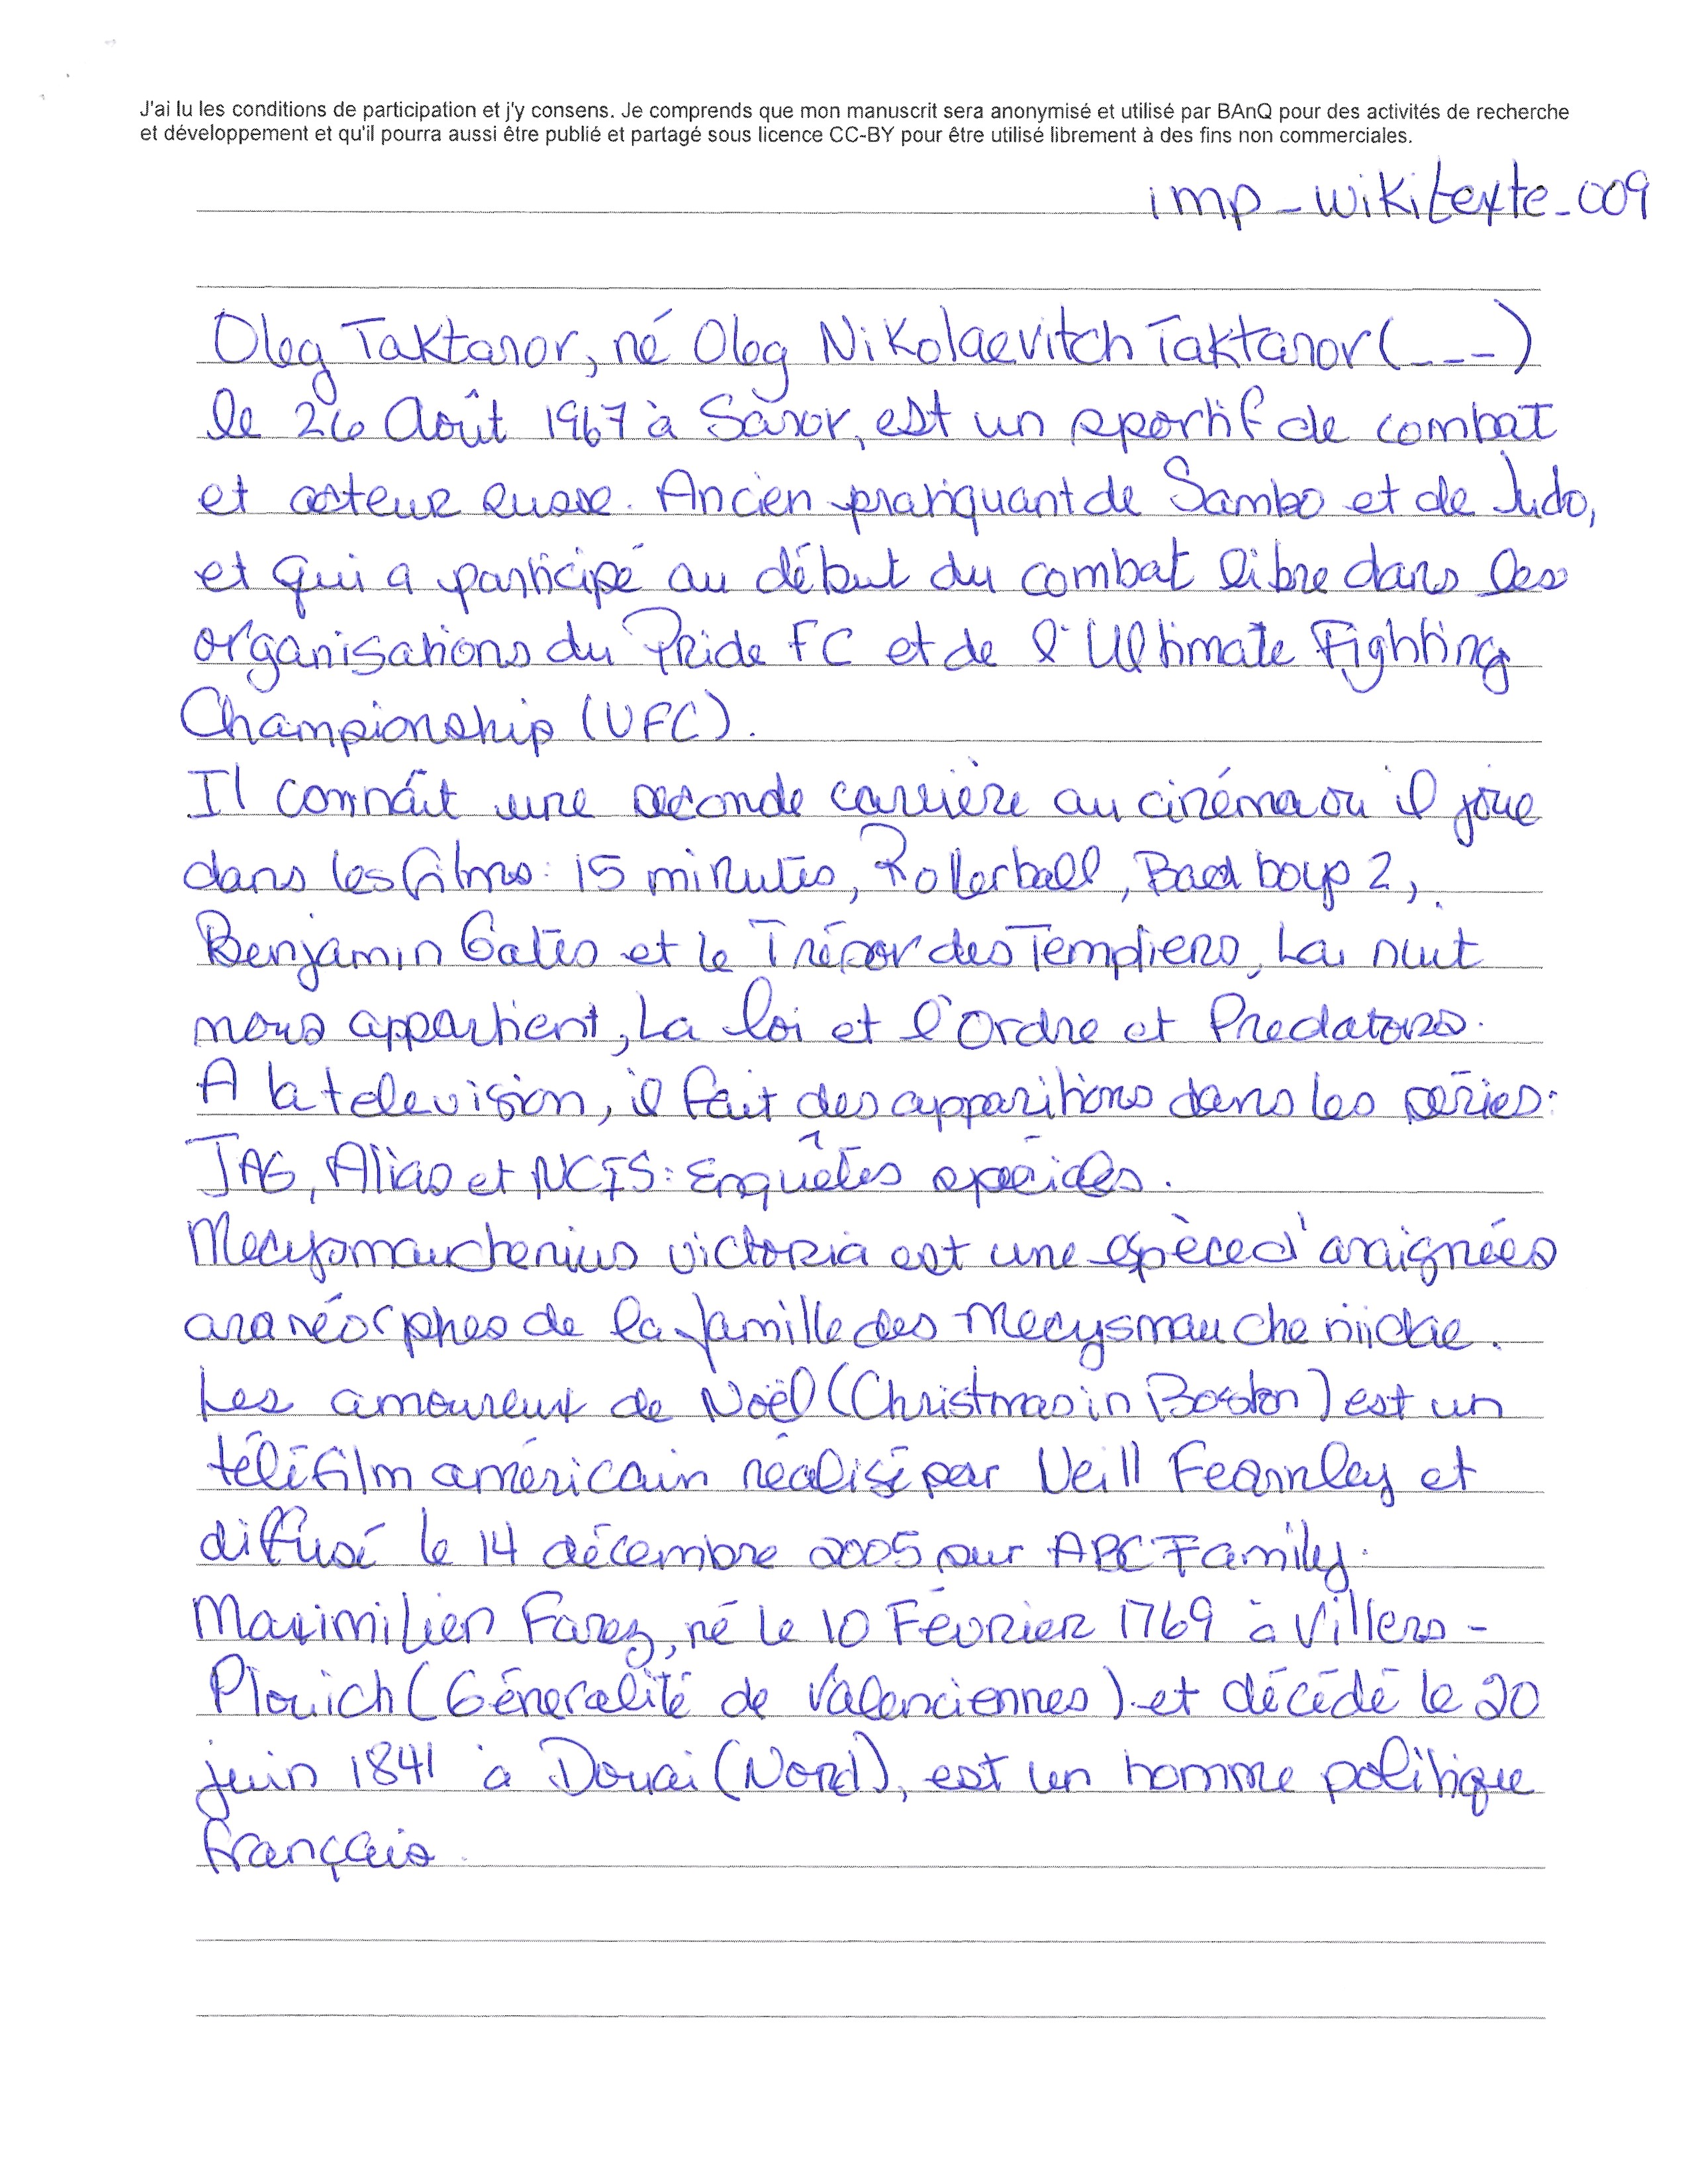 J'ai lu les conditions de participation et j'y consens. Je comprends que mon manuscrit sera anonymisé et utilisé par BAnQ pour des activités de recherche
et développement et qu'il pourra aussi être publié et partagé sous licence CC-BY pour être utilisé librement à des fins non commerciales.
imp_wikitexte_009
Oleg Taktaror, né Oleg Nikolaevitch Taktaror (___)
le 26 Août 1967 à Saror, est un sportif de combat
et acteur russe. Ancien pratiquant de Sambo et de Judo,
et qui a participé au début du combat libre dans les
organisations du Pride FC et de l'Ultimate Fighting
Championship (UFC).
Il connaît une seconde carrière au cinéma ou il joue
dans les films: 15 minutes, Rollerball, Bad boys 2,
Benjamin Gates et le Trésor des Templiers, La nuit
nous appartient, La loi et l'Ordre et Predators.
A la television, il fait des apparitions dans les séries:
JAG, Alias et NCIS: Enquêtes spéciales.
Mecysmauchenius victoria est une espèce d'araignées
aranéorphes de la famille des Mecysmaucheniidae.
Les amoureux de Noël (Christmas in Boston) est un
téléfilm américain réalisé par Neill Fearnley et
diffusé le 14 décembre 2005 sur ABC Family.
Maximilien Farez, né le 10 Février 1769 à Villers-
Plouich (Géneralité de Valenciennes) et décédé le 20
juin 1841 à Douai (Nord), est un homme politique
français.